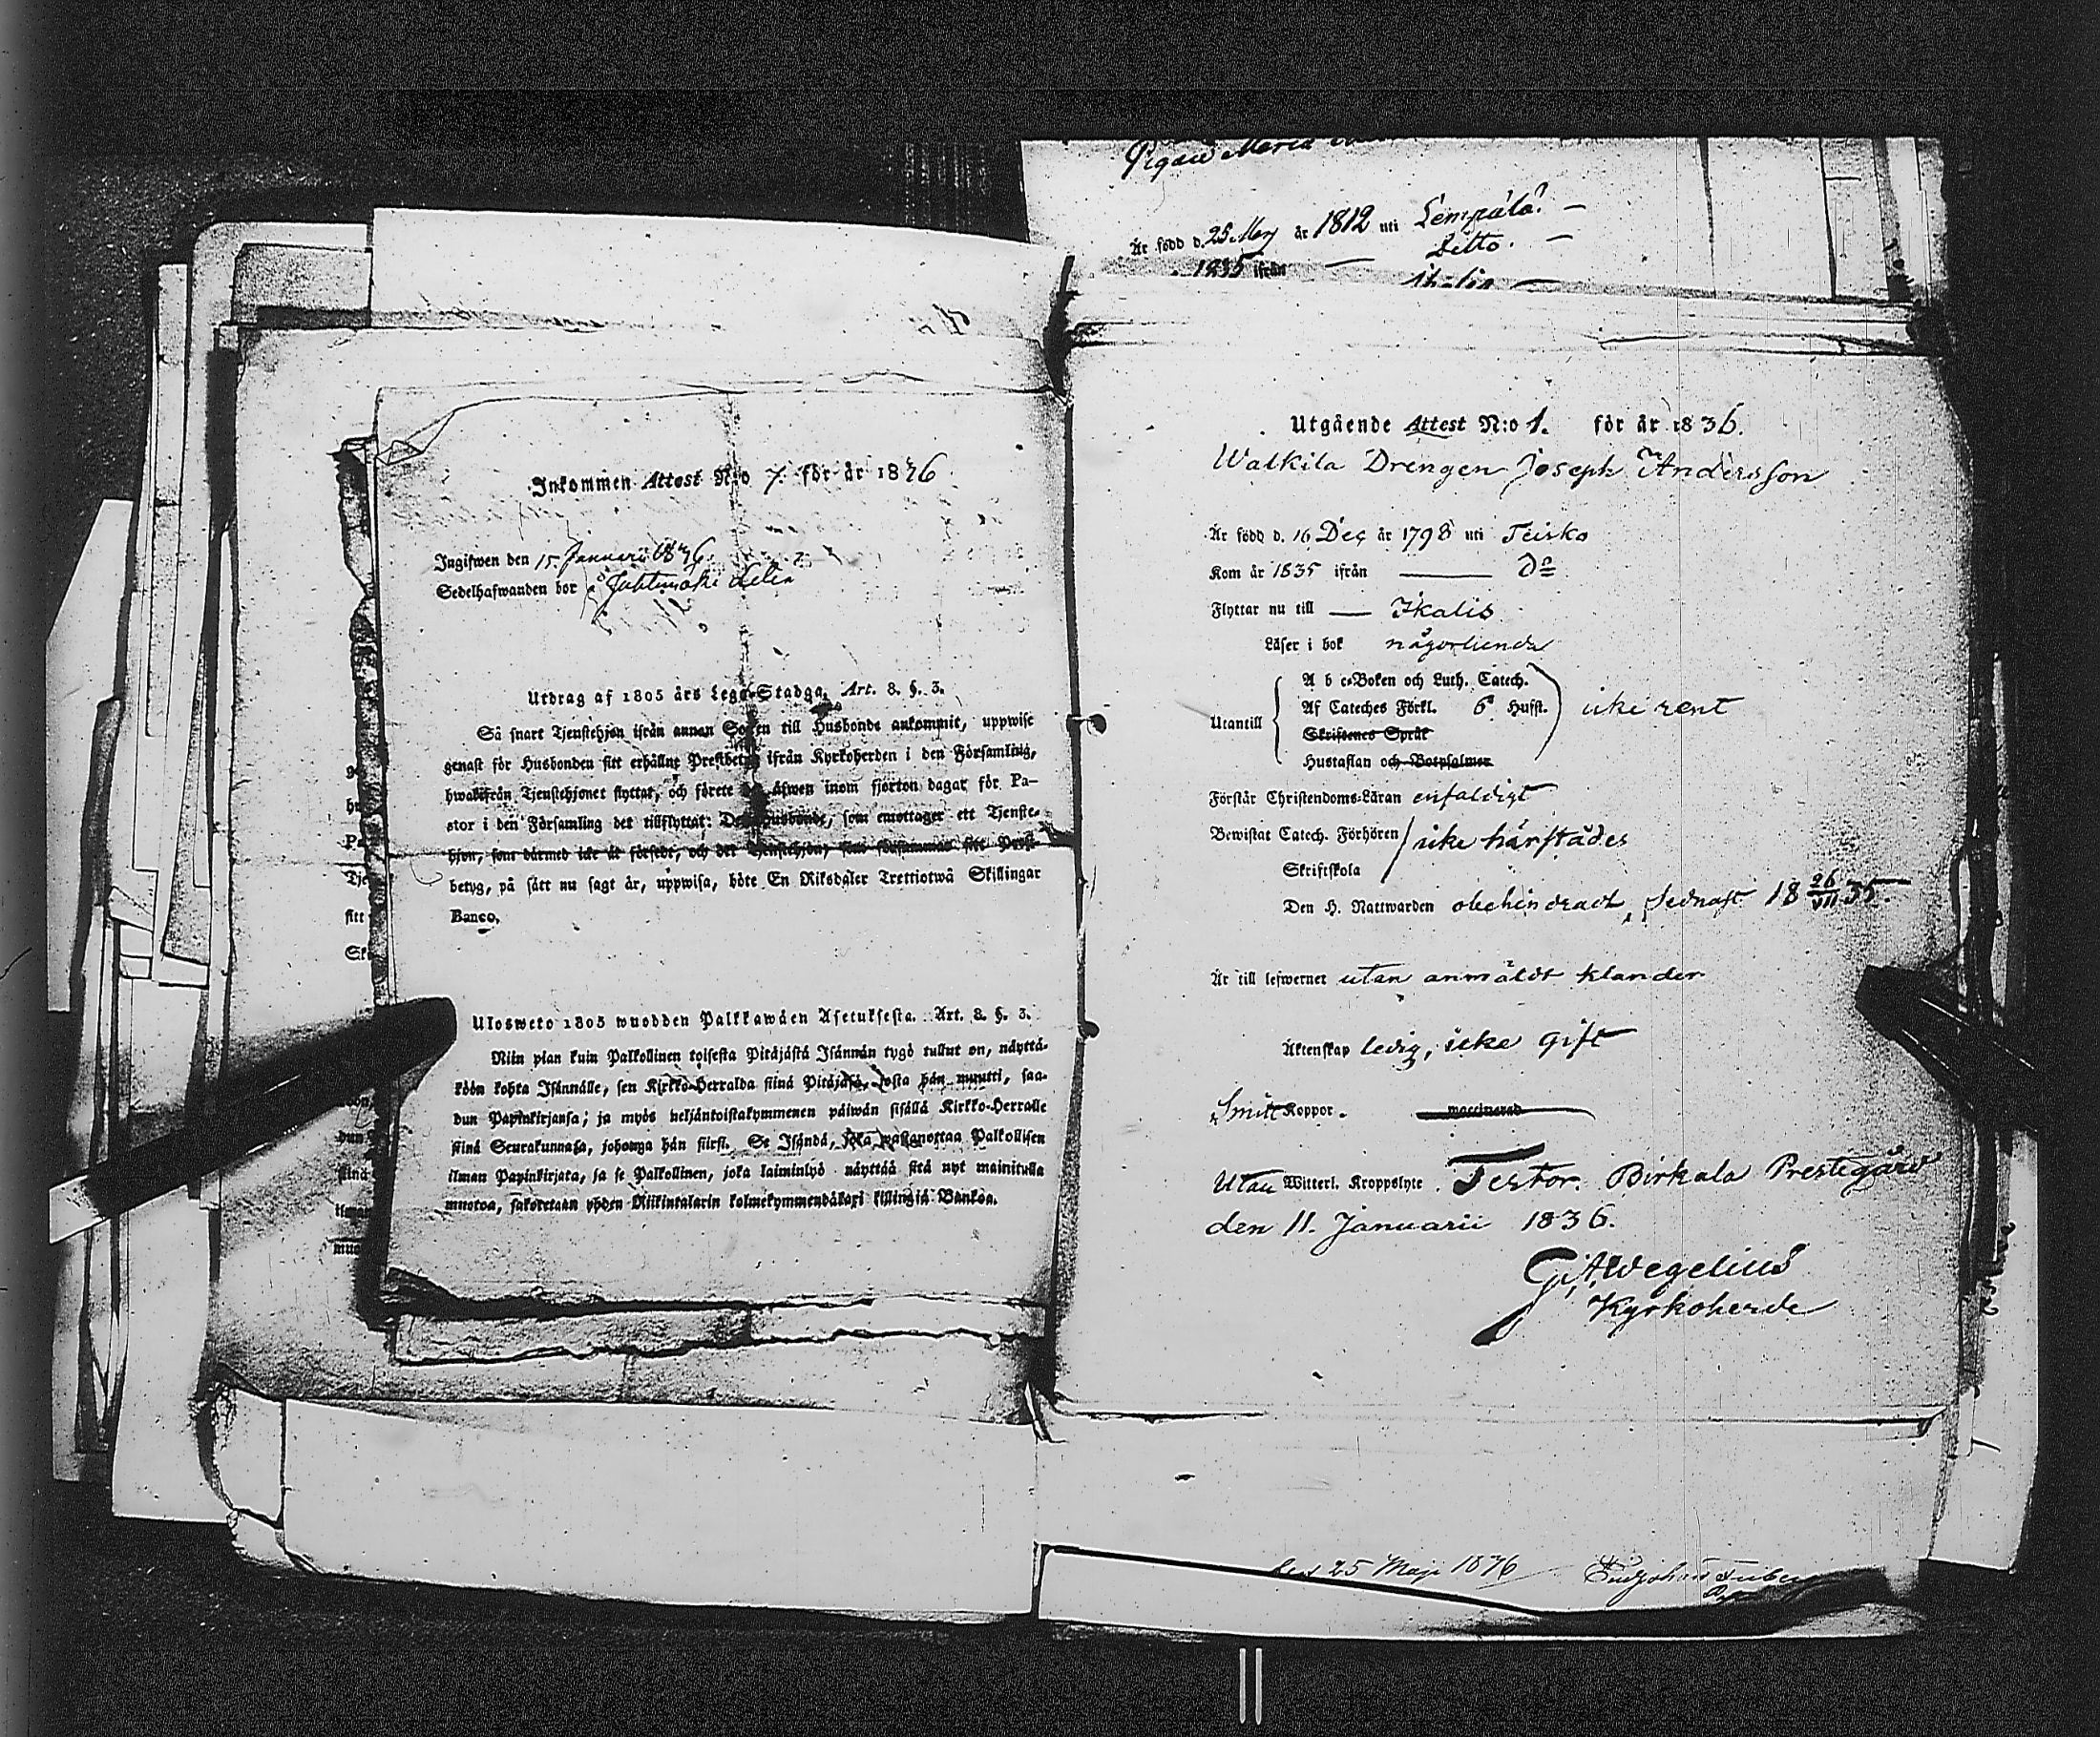 Pigan Maria
Är född d. 25 May år 1812 uti Lempälä. —
Ditto. —
1835 ifrån —
Inkommen Attest N:o 7. för år 1836
Ingifwen den 15 Januarii 1836.
Sedelhafwanden bor i
Utdrag af 1805 års Lego-Stadga, Art. 8. §. 3.
Så snart Tjenstehjon ifrån annan Socken till Husbonde ankommit, uppwise
genast för Husbonden sitt erhållne Prestbetyg ifrån Kyrkoherden i den Församling,
hwadifrån Tjenstehjonet flyttat, och förete det äfwen inom fjorton dagar för Pa-
stor i den Församling det tillflyttat: Den Husbonde, som emottager ett Tjenste-
hjon, som därmed icke är försedt, och det Tjenstehjon, som försummar sitt Prest-
betyg, på sätt nu sagt är, uppwisa, böte En Riksdaler Trettiotwå Skillingar
Banco.
Ulosweto 1805 wuodden Palkkawäen Asetuksesta. Art. 8. §. 3.
Niin pian kuin Palkollinen toisesta Pitäjästä Isännän tygö tullut on, näyttä-
köön kohta Isännälle, sen Kirkko-Herralda siinä Pitäjäsä, josta hän muutti, saa-
dun Papinkirjansa; ja myös neljäntoistakymmenen päiwän sisällä Kirkko-Herralle
siinä Seurakunnasa, johonga hän siirsi. Se Isändä, joka wastanottaa Palkollisen
ilman Papinkirjata, ja se Palkollinen, joka laiminlyö näyttää sitä nyt mainitulla
muotoa, sakoretaan yhden Riikintalarin kolmekymmendäkaxi killingiä Bankoa.
Utgående Attest N:o 1. för år 1836.
Walkila Drengen Joseph Andersson
Är född d. 16 Dec år 1798 uti Teisko
Kom år 1835 ifrån — Do
Flyttar nu till — Ikalis
Läser i bok någorlunda
A b c-Boken och Luth. Catech.
Af Cateches Förkl. 6 Hufst. icke rent
Utantill
Skriftenes Språk
Hustaflan och Botpsalmer
Förstår Christendoms-Läran enfaldigt
Bewistat Catech. Förhören icke härstädes
Skriftskola
Den H. Nattwarden obehindradt, sednast 18 26/VII 35.
Är till lefwernet utan anmäldt klander
Äktenskap ledig, icke gift
Smitt Koppor. waccinerad
Utan Witterl. Kroppslyte. Testor. Birkala Prestegård
den 11. Januarii 1836.
G. A. Wegelius
Kyrkoherde
den 25 Maji 1836